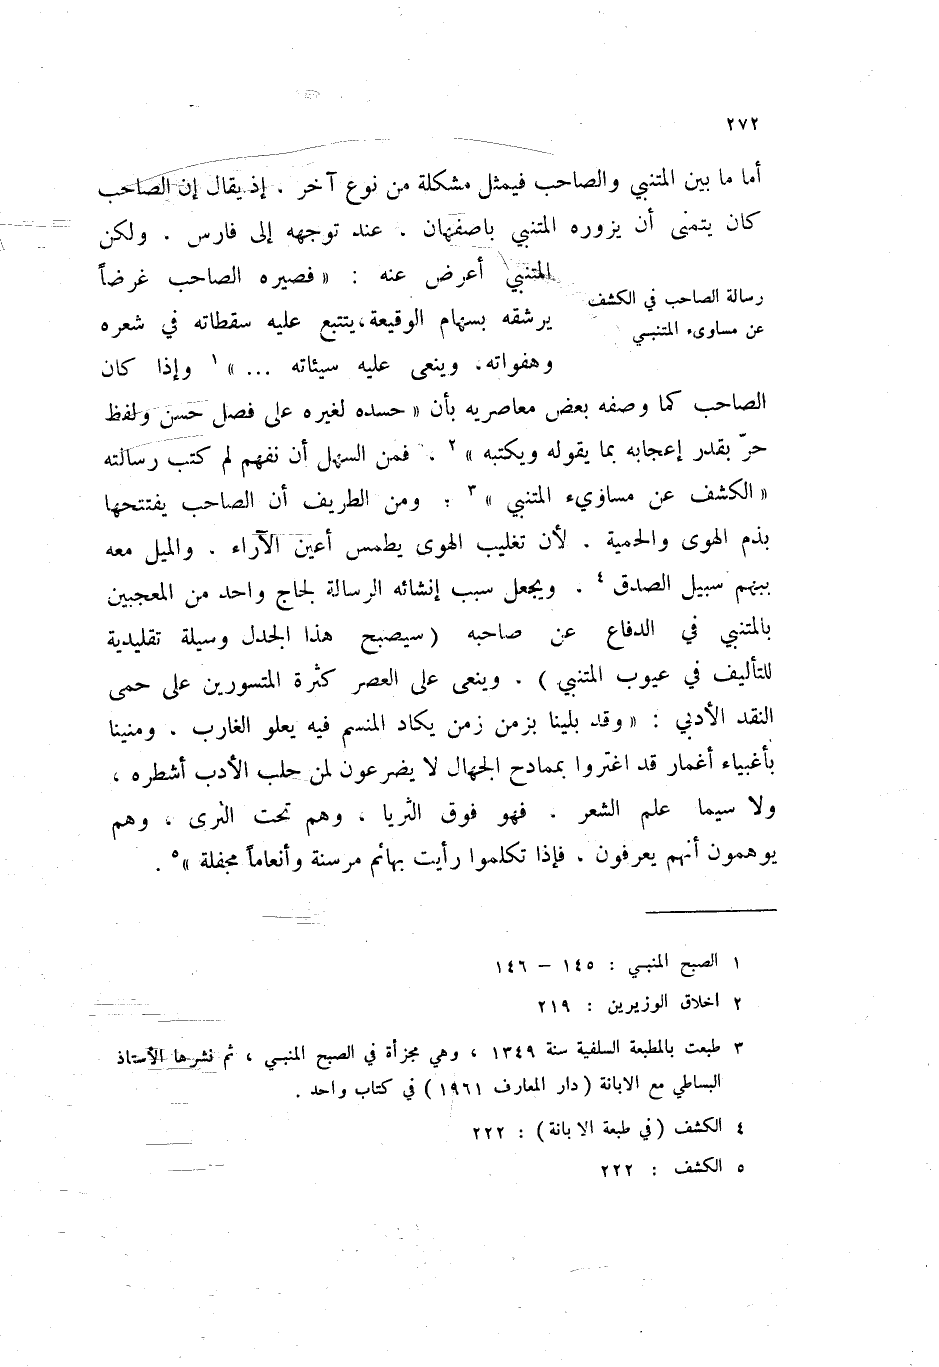 ٢٧٢
أما ما بين المتنبي والصاحب فيمثل مشكلة من نوع آخر . إذ يقال إن الصاحب
كان يتمنى أن يزوره المتنبي باصفهان . عند توجهه إلى فارس . ولكن
رسالة الصاحب في الكشف
عن مساوىء المتنبي
المتنبي أعرض عنه : « فصيره الصاحب غرضاً
يرشقه بسهام الوقيعة ، يتتبع عليه سقطاته في شعره
وهفواته ، وينعى عليه سيئاته ... » ١ وإذا كان
الصاحب كما وصفه بعض معاصريه بأن « حسده لغيره على فصل حسن ولفظ
حرّ بقدر إعجابه بما يقوله ويكتبه » ٢ . فمن السهل أن نفهم لم كتب رسالته
« الكشف عن مساوىء المتنبي » ٣ : ومن الطريف أن الصاحب يفتتحها
بذم الهوى والحمية . لأن تغليب الهوى يطمس أعين الآراء . والميل معه
يبهم سبيل الصدق ٤ . ويجعل سبب إنشائه الرسالة لجاج واحد من المعجبين
بالمتنبي في الدفاع عن صاحبه ( سيصبح هذا الجدل وسيلة تقليدية
للتأليف في عيوب المتنبي ) . وينعى على العصر كثرة المتسورين على حمى
النقد الأدبي : « وقد بلينا بزمن زمن يكاد المنسم فيه يعلو الغارب . ومنينا
بأغبياء أغمار قد اغتروا بممادح الجهال لا يضرعون لمن حلب الأدب أشطره ،
ولا سيما علم الشعر . فهو فوق الثريا ، وهم تحت الثرى ، وهم
يوهمون أنهم يعرفون . فإذا تكلموا رأيت بهائم مرسنة وأنعاماً مجفلة » ٥ .
١ الصبح المنبي : ١٤٥ – ١٤٦
٢ اخلاق الوزيرين : ٢١٩
٣ طبعت بالمطبعة السلفية سنة ١٣٤٩ ، وهي مجزأة في الصبح المنبي ، ثم نشرها الأستاذ
البساطي مع الابانة ( دار المعارف ١٩٦١ ) في كتاب واحد .
٤ الكشف ( في طبعة الابانة ) : ٢٢٢
٥ الكشف : ٢٢٢